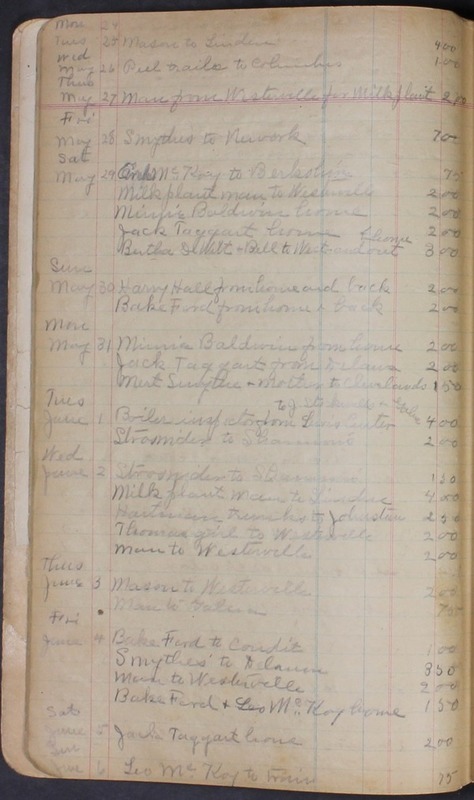 Mon 24
Tues 25 Mason to Linden 4 00
Wed
May 26 Peel Trailer to Columbus 1 00
Thurs
May 27 Man from Westerville for Milk plant 2 00
Fri
May 28 Smythes to Newark 7 00
Sat
May 29 McKay to Berkshire 75
Milk plant man to Westerville 2 00
Minnie Baldwin home 2 00
Jack Taggart home 2 00
& home
Bertha DeWitt & Bell to West and out 3 00
Sun
May 30 Harry Hall from home and back 2 00
Bake Ford from home & back 2 00
Mon
May 31 Minnie Baldwin from home 2 00
Jack Taggart from Delaware 2 00
Mert Smythe & mother to 1 50
Tues
June 1 Boiler inspector from Lewis Center 4 00
to 2 00
Wed
June 2 to 1 50
Milk plant man to 4 00
trunks to Johnstown 2 50
Thomas girl to Westerville 2 00
Man to Westerville 2 00
Thurs
June 3 Mason to Westerville 2 00
Man to Galena 75
Fri
June 4 Bake Ford to Condit 1 00
Smythes to Delaware 3 50
Man to Westerville 2 00
Bake Ford & Leo McKay home 1 50
Sat
June 5 Jack Taggart home 2 00
Sun
June 6 Leo McKay to train 75